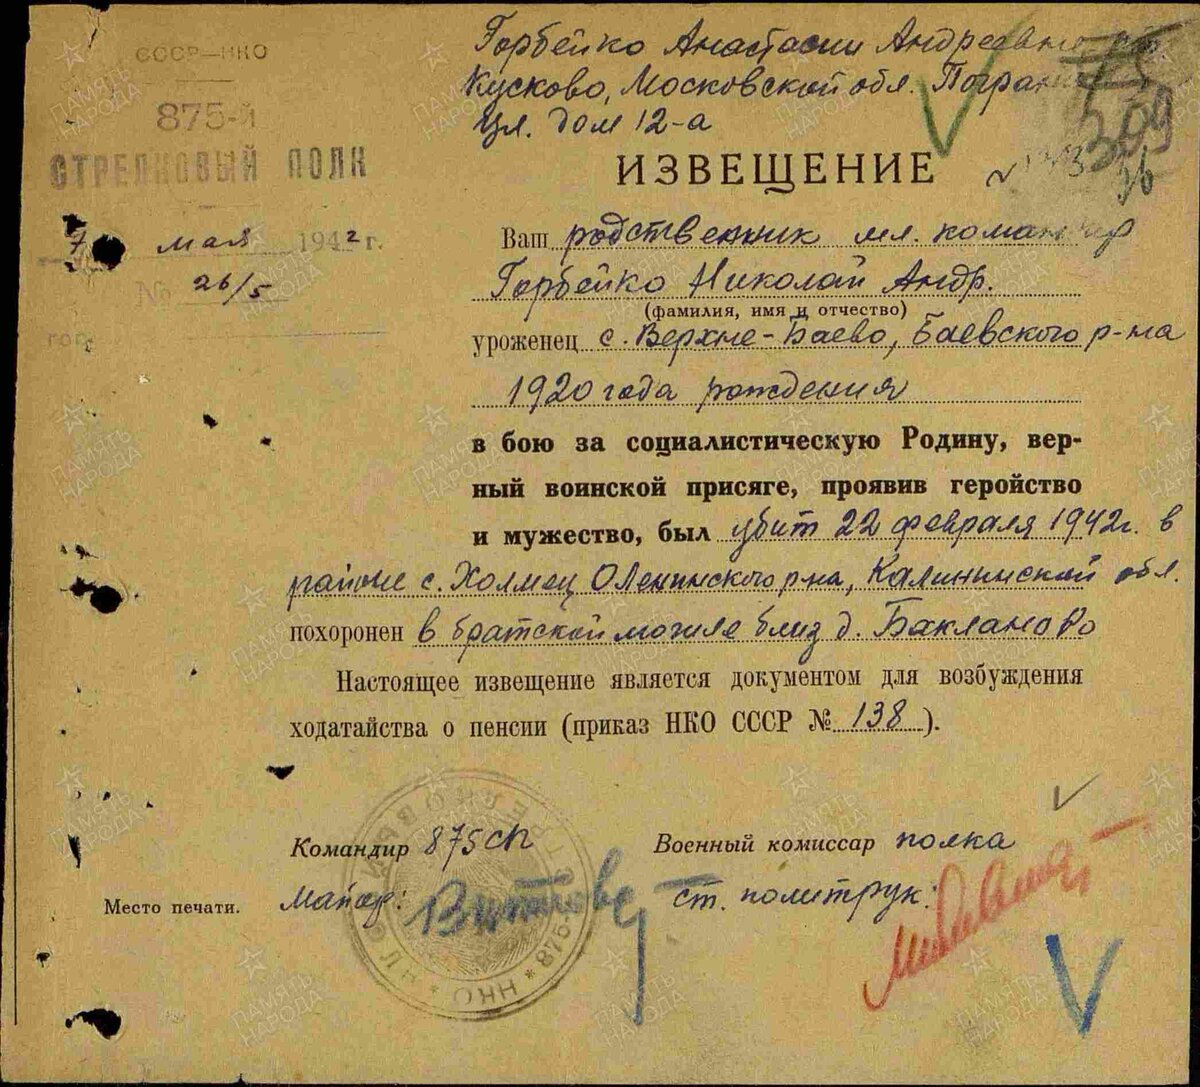 СССР—НКО
875-й
СТРЕЛКОВЫЙ ПОЛК
7 мая 1942 г.
№ 26/5
гор.
Горбейко Анастасии Андреевне
Кусково, Московской обл.
ул. дом 12-а
309
ИЗВЕЩЕНИЕ
Ваш родственник мл. командир
Горбейко Николай Андр.
(фамилия, имя и отчество)
уроженец с. Верхне-Баево, Баевского р-на
1920 года рождения
в бою за социалистическую Родину, вер-
ный воинской присяге, проявив геройство
и мужество, был убит 22 февраля 1942г. в
районе с. Холмец Оленинского р-на, Калининской обл.
похоронен в братской могиле близ д. Бакланово
Настоящее извещение является документом для возбуждения
ходатайства о пенсии (приказ НКО СССР № 138 ).
Командир 875 сп
Военный комиссар полка
Место печати.
Майор:
ст. политрук:
НКО * 875-
ПАМЯТЬ НАРОДА